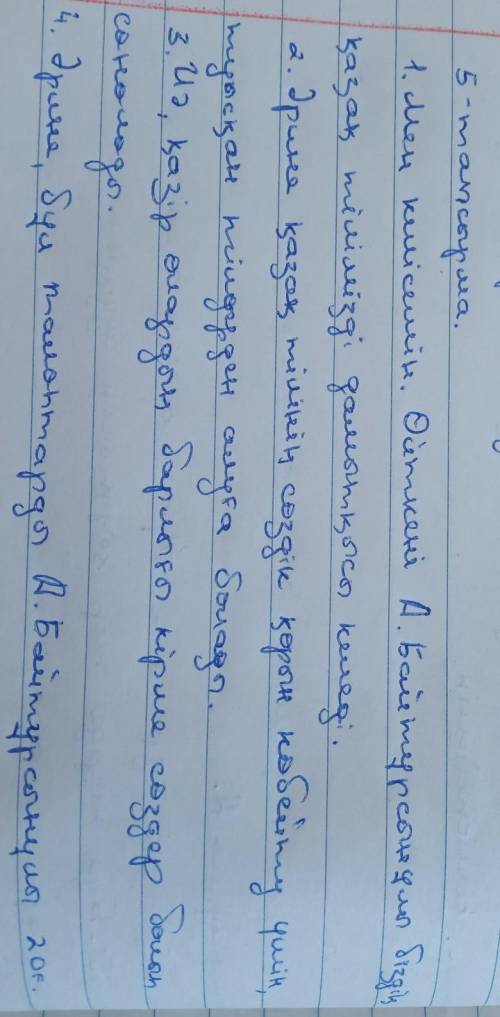 5-тапсырма.
1. Мен келісемін. Өйткені А. Байтұрсынұлы біздің
қазақ тілімізді дамытқысы келеді.
2. Әрине қазақ тілінің сөздік қорын көбейту үшін,
туысқан тілдерден алуға болады.
3. Иә, қазір олардың барлығы кірме сөздер болып
саналады.
4. Әрине, бұл талаптарды А. Байтұрсынұлы 20ғ.